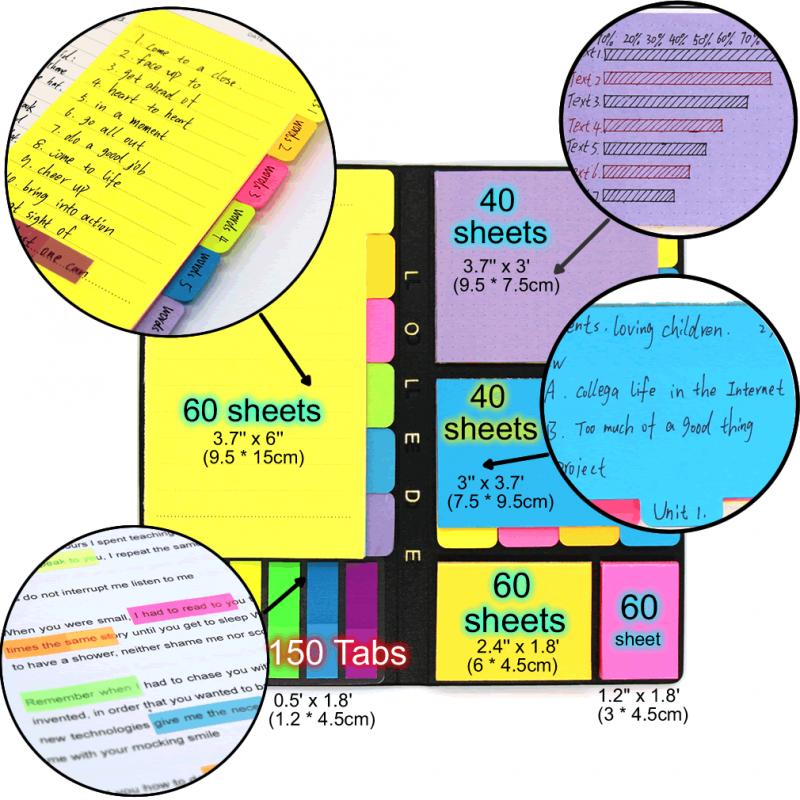 1. come to a close.
2. face up to
3. get ahead of
4. heart to heart
5. in a moment
6. go all out
7. do a good job
8. come to life
9. cheer up
bring into action
sight of
words 2
words 3
words 4
words 5
words
10% 20% 30% 40% 50% 60% 70%
Text 2
Text 3
Text 4
Text 5
40
sheets
3.7" x 3'
(9.5 * 7.5cm)
L O L L E D E
60 sheets
3.7" x 6"
(9.5 * 15cm)
40
sheets
3" x 3.7'
(7.5 * 9.5cm)
ents. loving children. 2,
w
A. collega life in the Internet
B. Too much of a good thing
project
Unit 1.
ours I spent teaching
speak to you, I repeat the sam
do not interrupt me listen to me
When you were small, I had to read to you
times the same story until you get to sleep
to have a shower, neither shame me nor sc
Remember when I had to chase you wi
invented, in order that you wanted to b
new technologies give me the nece
me with your mocking smile
you how to d
150 Tabs
0.5' x 1.8'
(1.2 * 4.5cm)
60
sheets
2.4" x 1.8'
(6 * 4.5cm)
60
sheet
1.2" x 1.8'
(3 * 4.5cm)